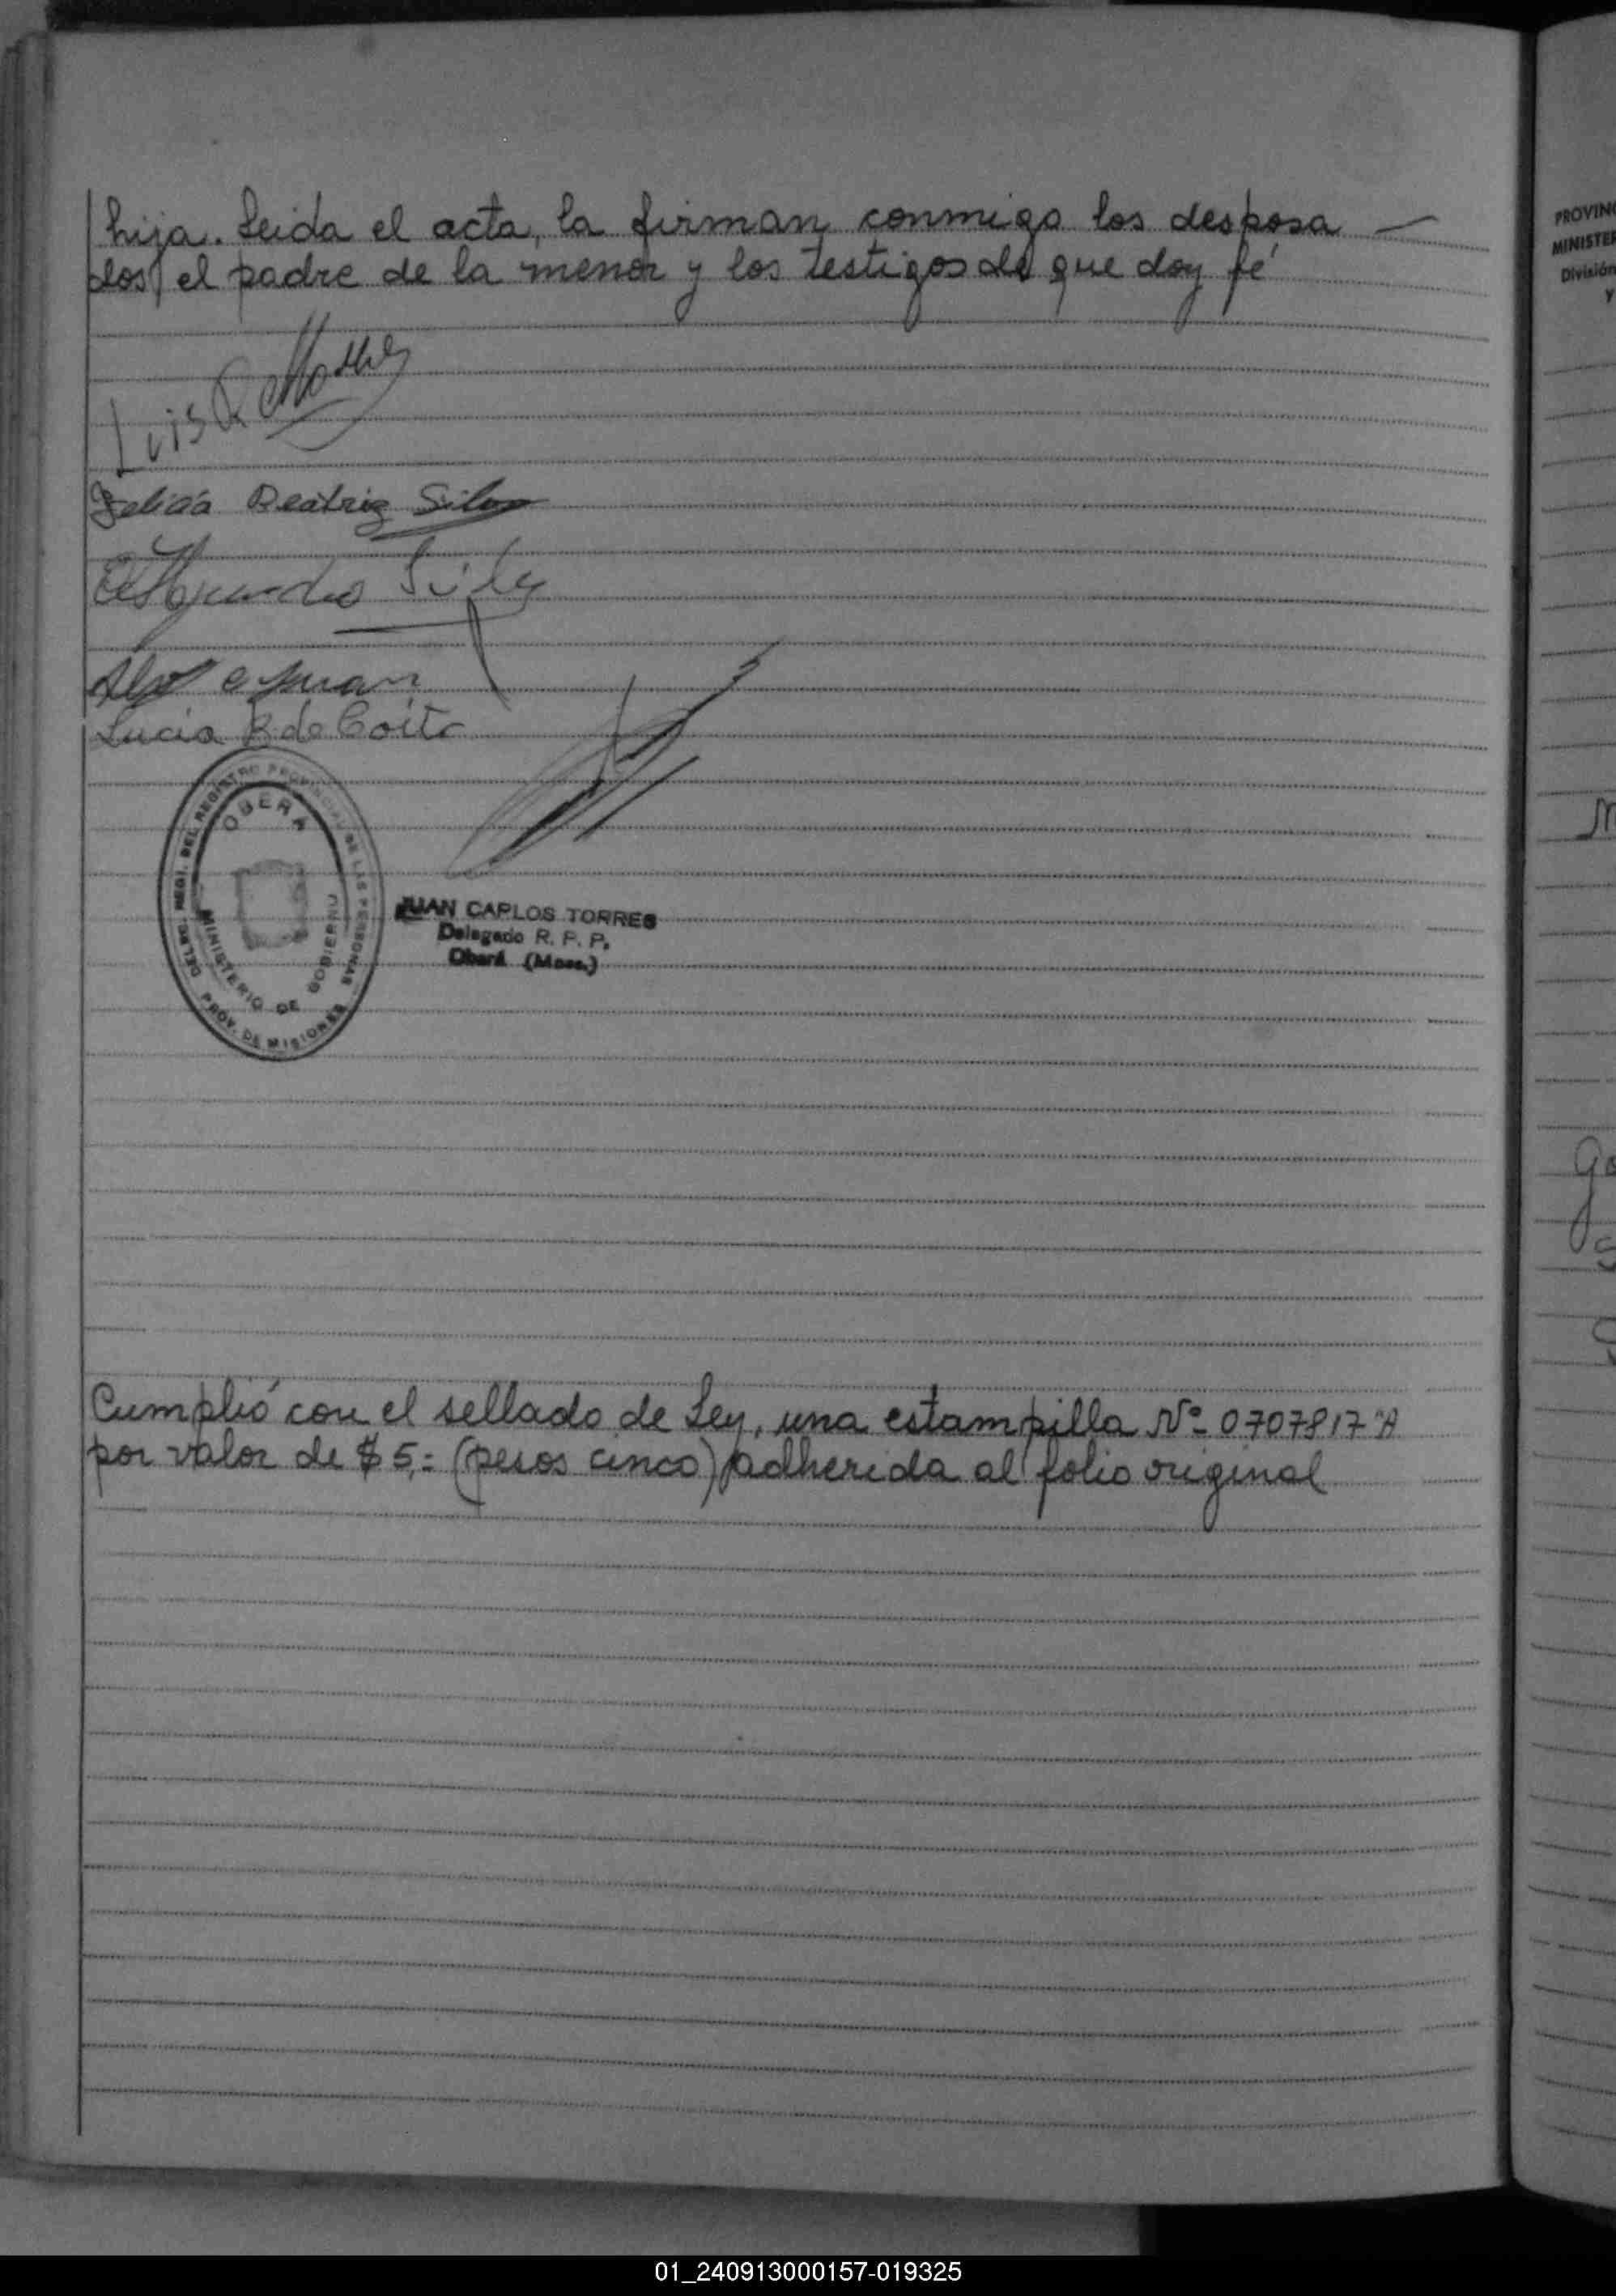 hija. Leida el acta, la firman conmigo los desposa
dos, el padre de la menor y los testigos de que doy fé
Luis R
Beatriz Silva
Lucia R de Coito
DELEG. REGI. DEL REGISTRO PROVINCIAL DE LAS PERSONAS
OBERA
MINISTERIO DE GOBIERNO
PROV. DE MISIONES
JUAN CARLOS TORRES
Delegado R. P. P.
Oberá (Mnes.)
Cumplió con el sellado de Ley, una estampilla Nº 0707817 "A
por valor de $ 5,= (pesos cinco) adherida al folio original
PROVINC
MINISTER
División
y
01_240913000157-019325